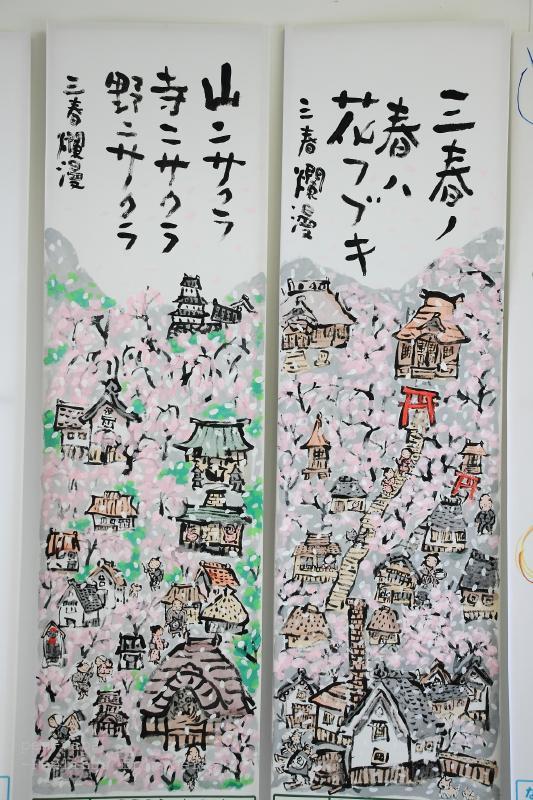 三春ノ
春ハ
花フブキ
三春爛漫
山ニサクラ
寺ニサクラ
野ニサクラ
三春爛漫